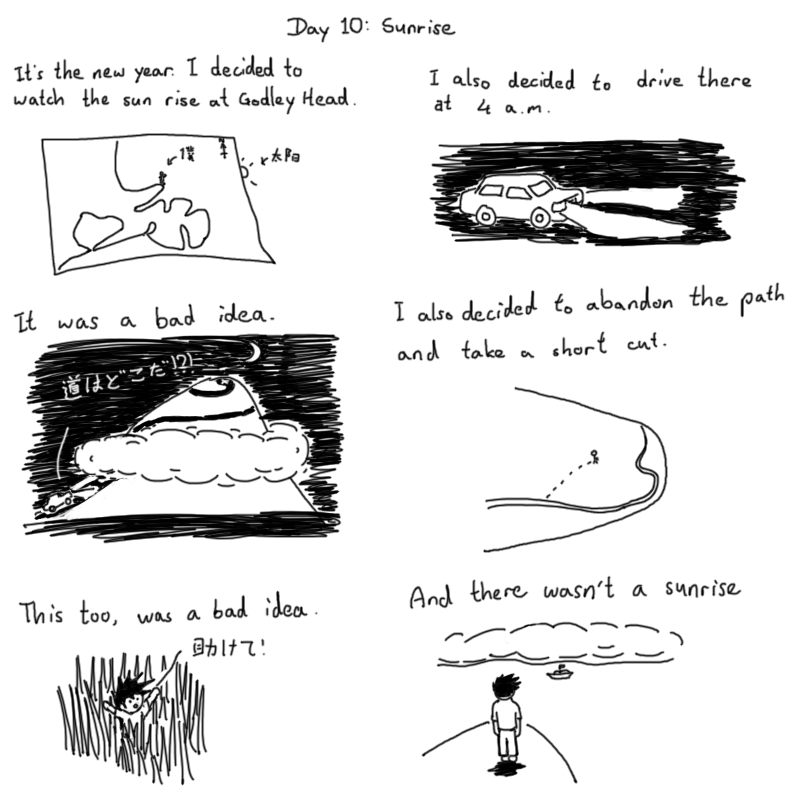 Day 10: Sunrise
It's the new year. I decided to
watch the sun rise at Godley Head.
僕
太陽
I also decided to drive there
at 4 a.m.
It was a bad idea.
道はどこだ!?!
I also decided to abandon the path
and take a short cut.
This too, was a bad idea.
助けて!
And there wasn't a sunrise